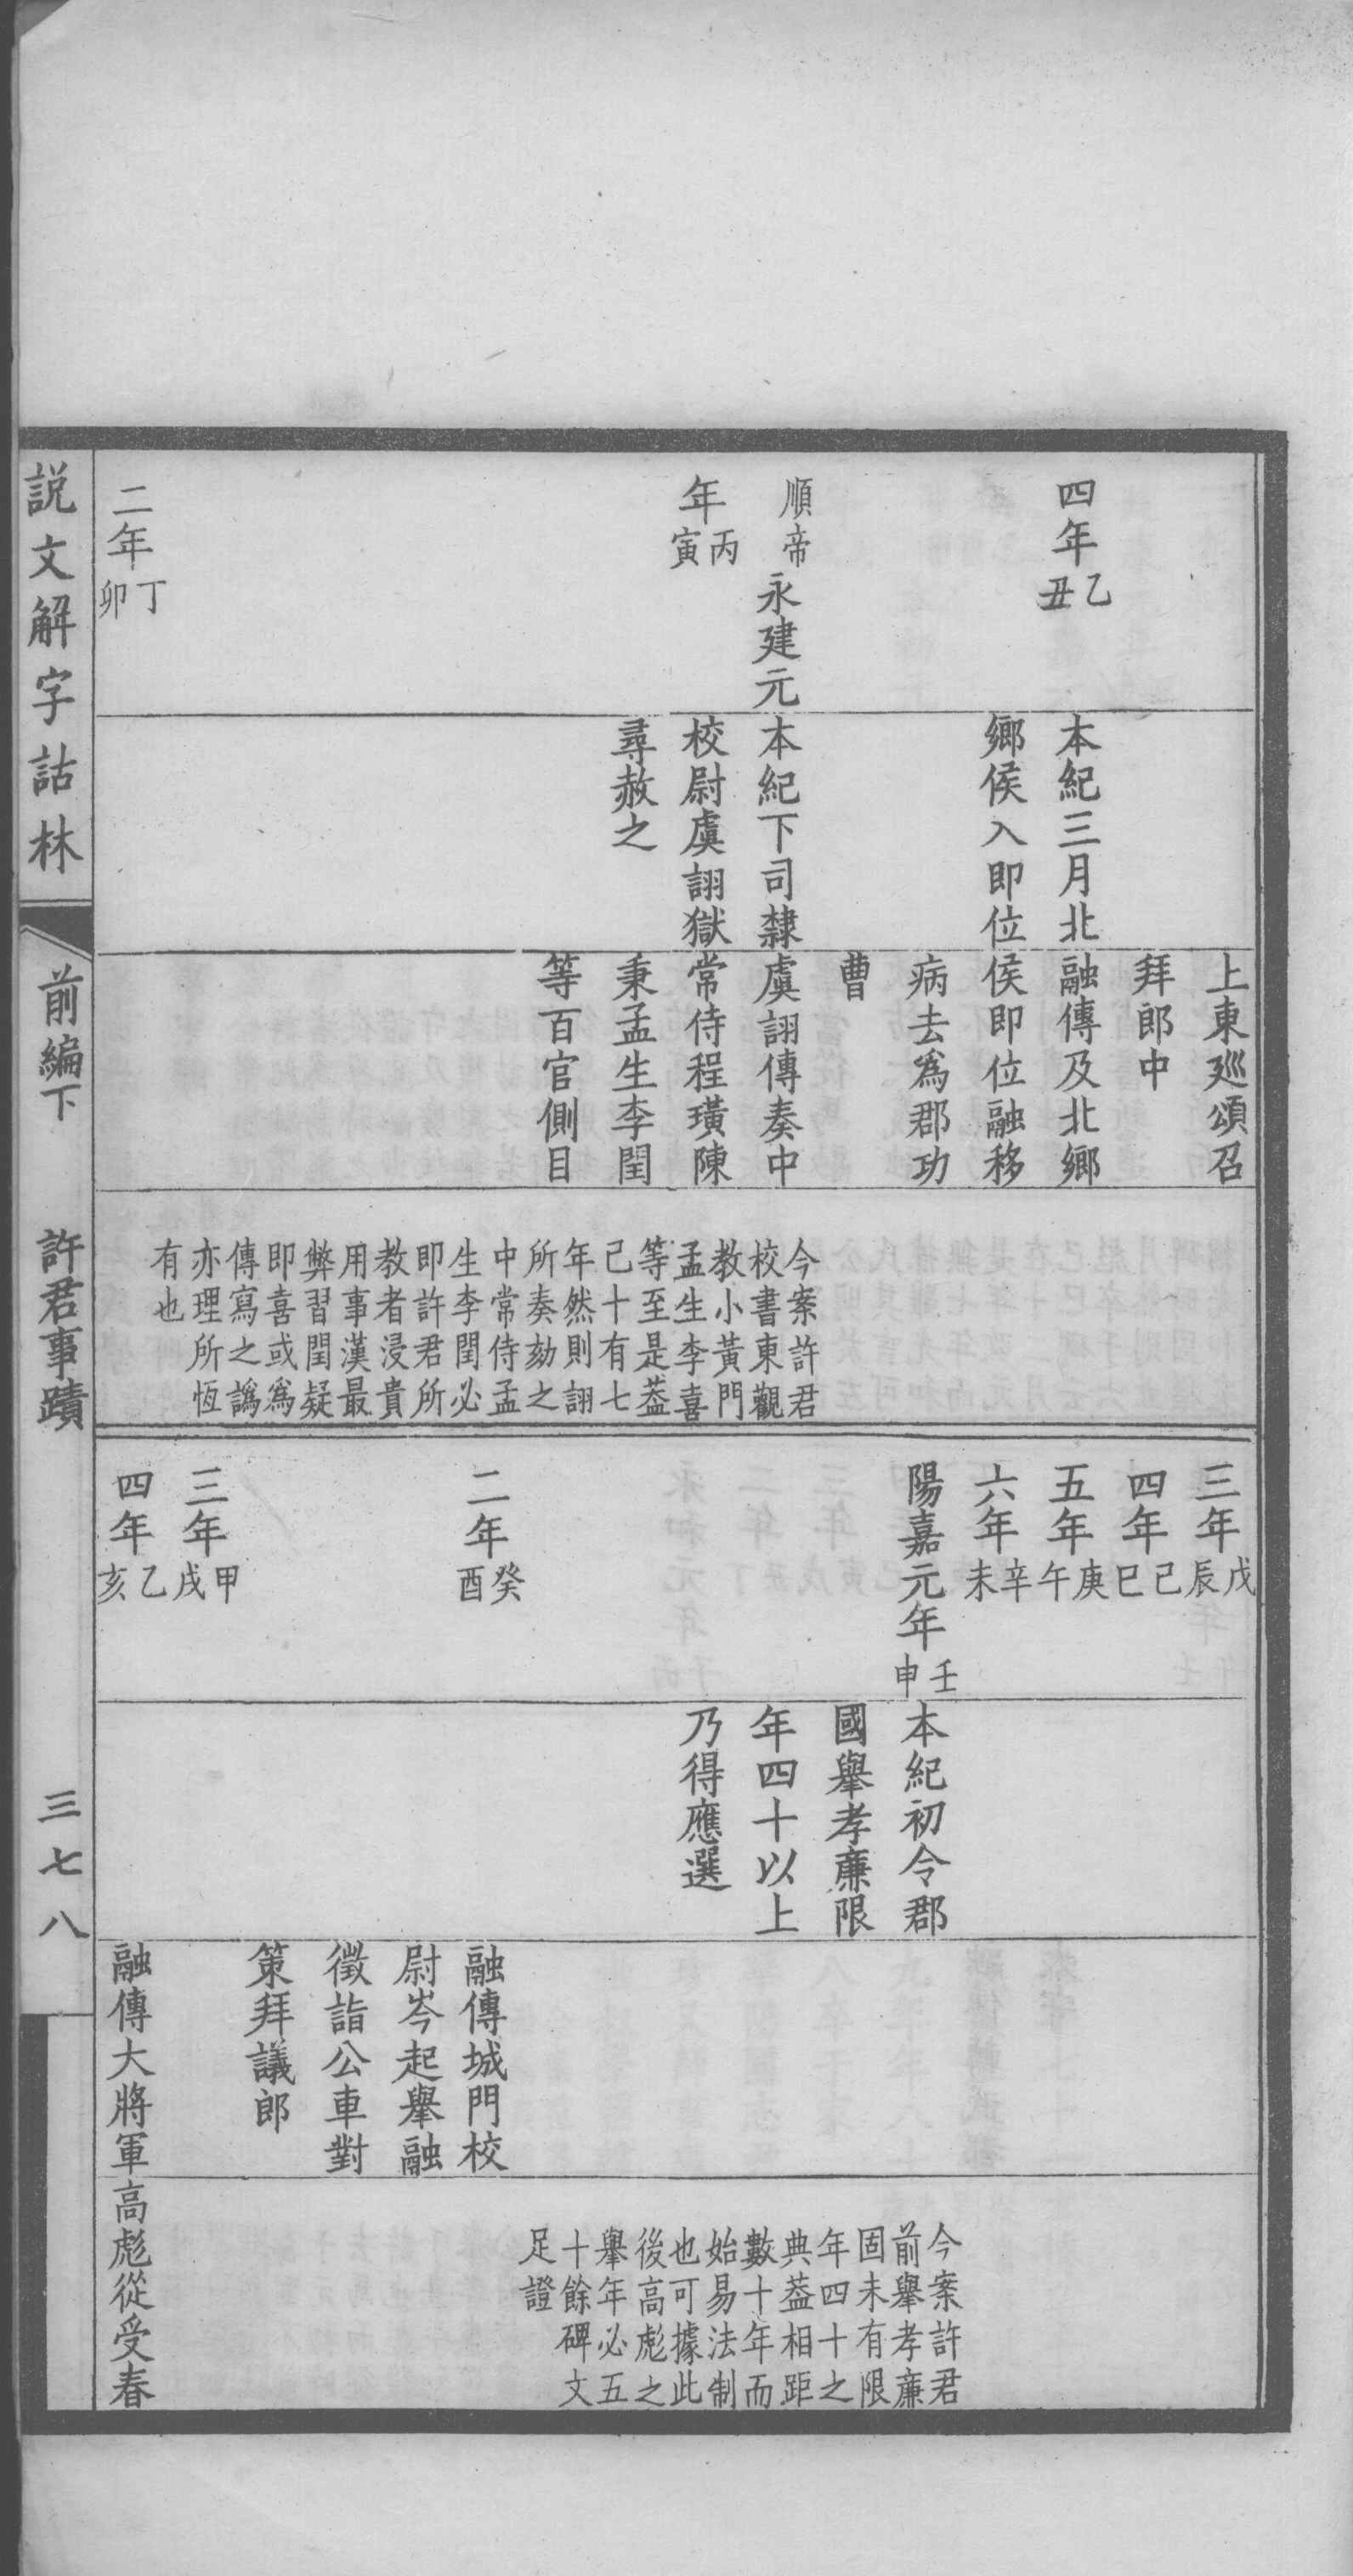 四年乙丑
順帝永建元
年丙寅
二年丁卯
本紀三月北
鄉侯入即位
本紀下司隸
校尉虞詡獄
尋赦之
上東廵頌召
拜郎中
融傳及北鄉
侯即位融移
病去爲郡功
曹
虞詡傳奏中
常侍程璜陳
秉孟生李閏
等百官側目
今案許君
校書東觀
教小黃門
孟生李喜
等至是葢
己十有七
年然則詡
所奏劾之
中常侍孟
生李閏必
即許君所
教者浸貴
用事漢最
弊習閏疑
即喜或爲
傳寫之譌
亦理所恆
有也
三年戊辰
四年己巳
五年庚午
六年辛未
陽嘉元年壬申
二年癸酉
三年甲戌
四年乙亥
本紀初令郡
國舉孝廉限
年四十以上
乃得應選
融傳城門校
尉岑起舉融
徵詣公車對
策拜議郎
融傳大將軍高彪從受春
今案許君
前舉孝廉
固未有限
年四十之
典葢相距
數十年而
始易法制
也可據此
後高彪之
舉年必五
十餘碑文
足證
説文解字詁林
前編下
許君事蹟
三七八